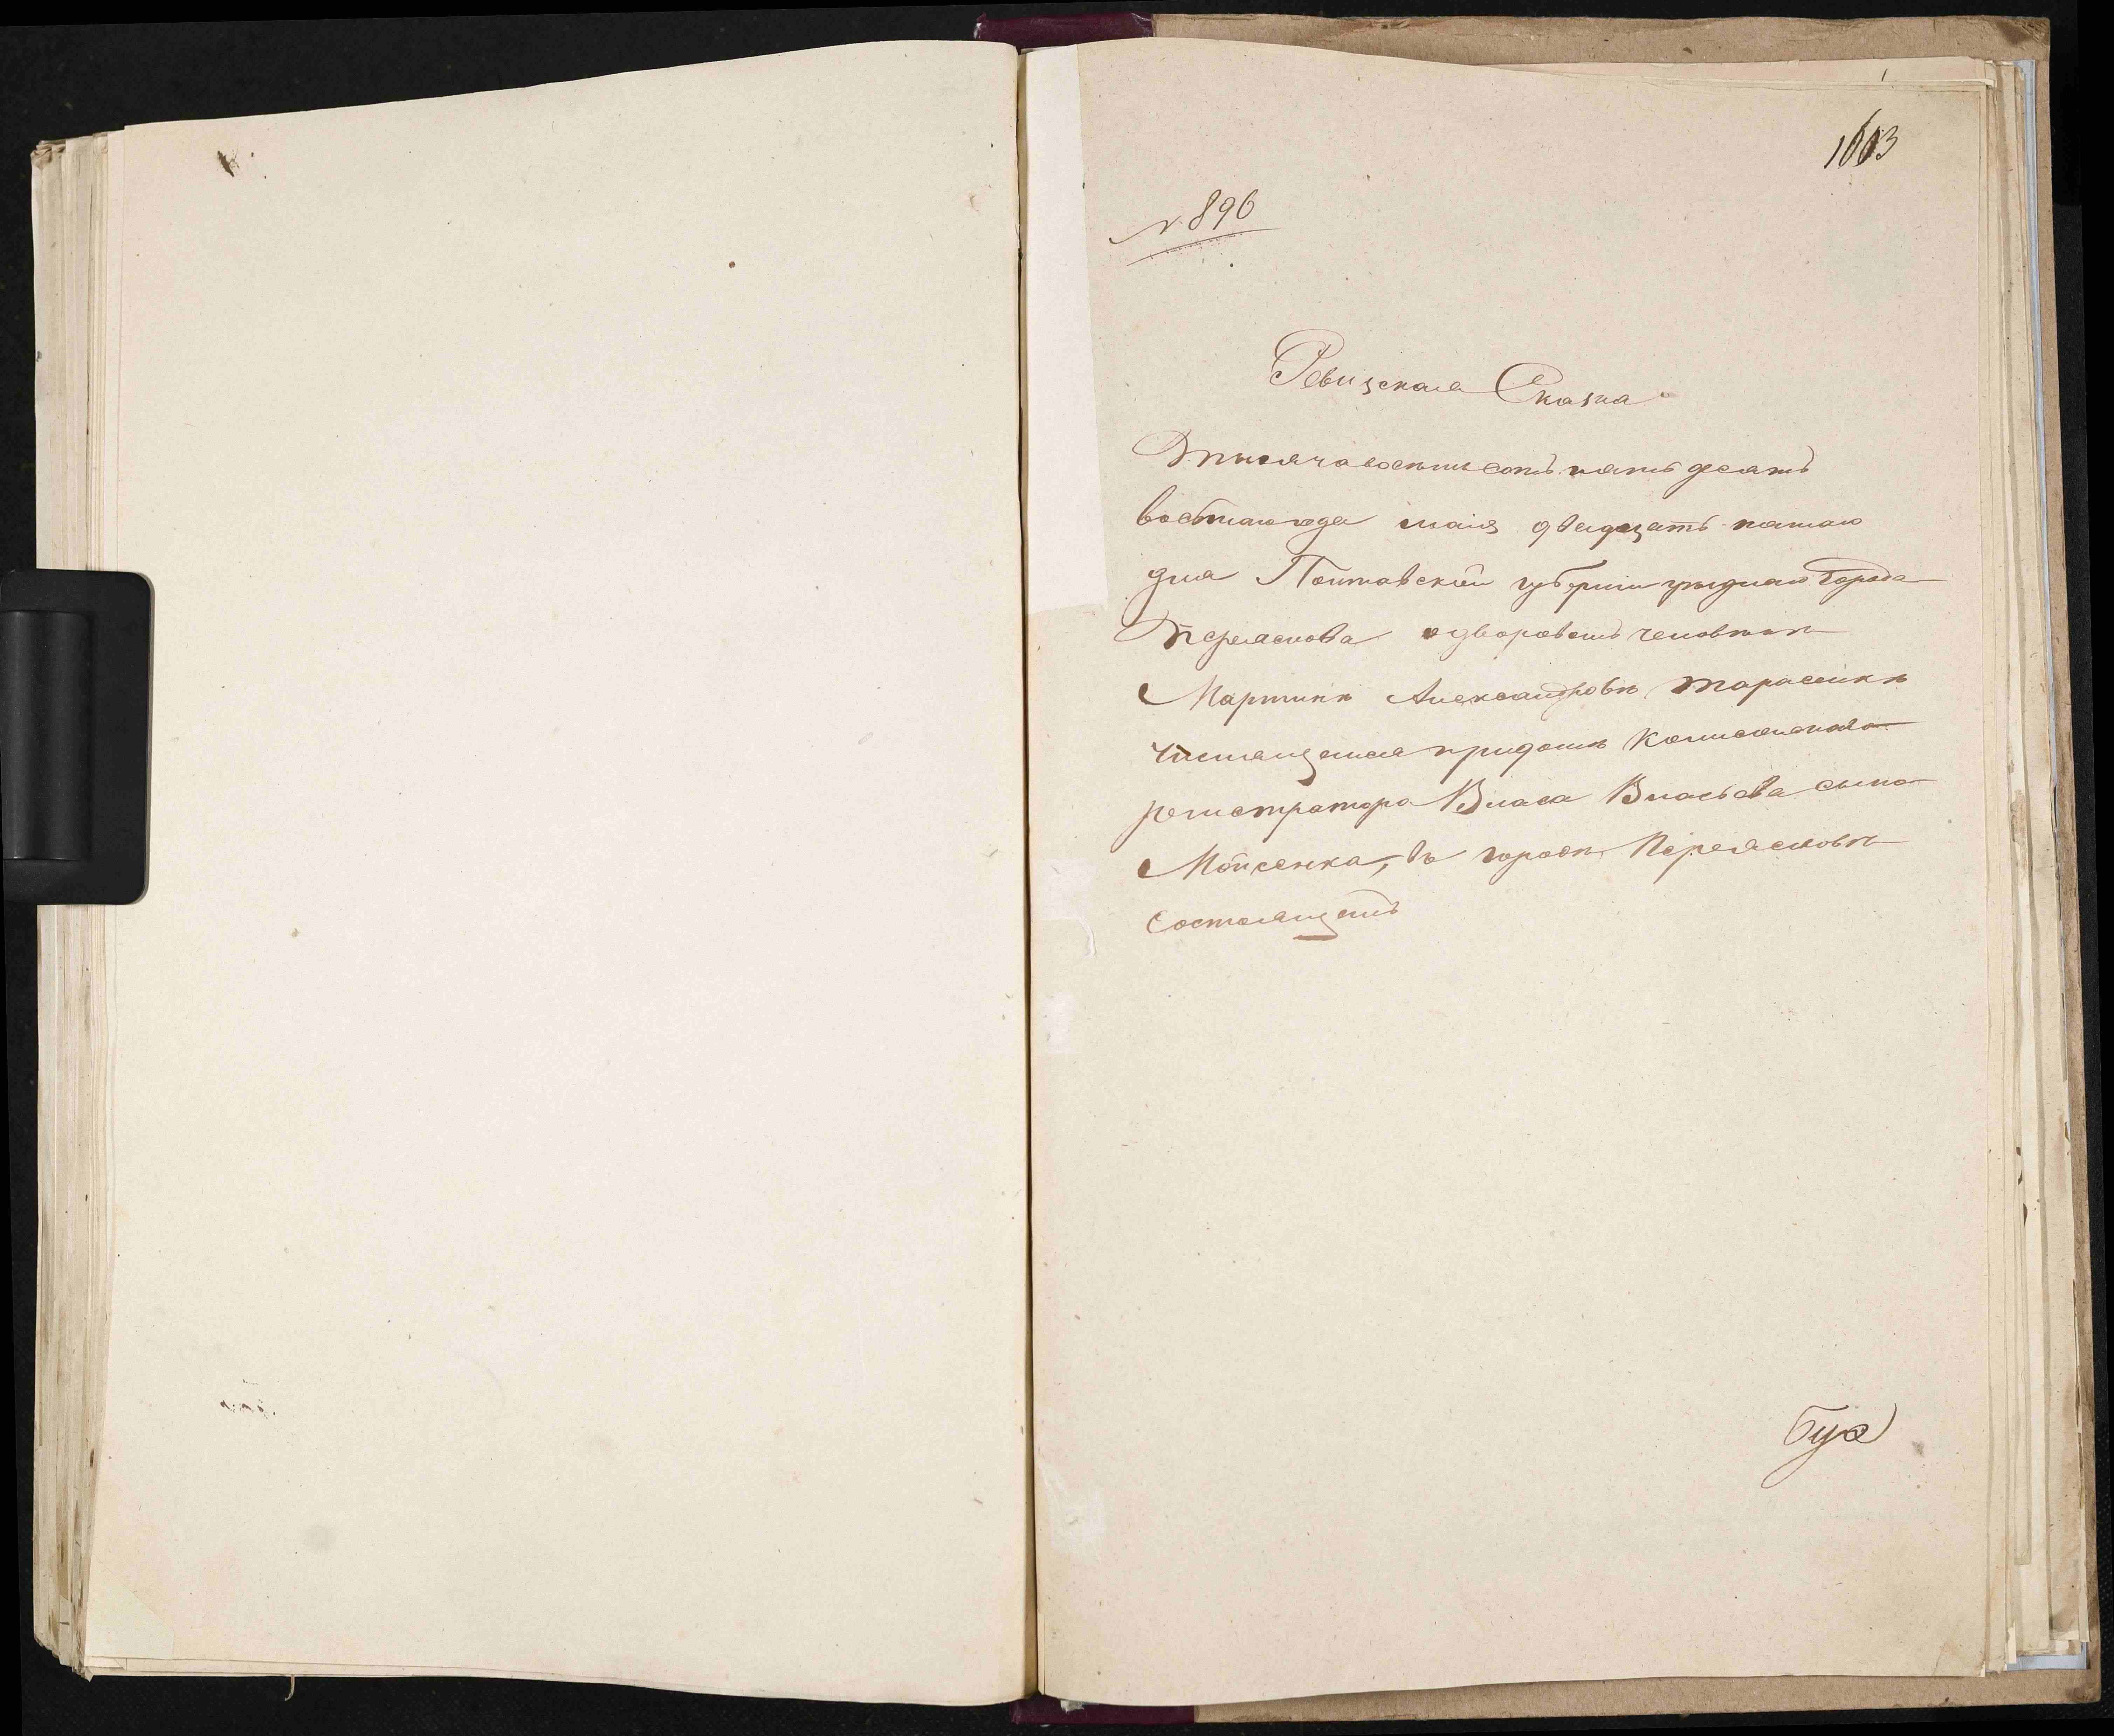 1613
№ 896
Ревизская Сказка
Тысяча восемьсотъ пятьдесятъ
восьмаго года маія двадцать пятаго
дня Полтавской губерніи уѣзднаго города
Переяслова о дворовомъ человѣкѣ
Мартинѣ Александровѣ Тарасенкѣ
числящемся при домѣ Колискаго
регистратора Власа Власьева сына
Мойсенка, въ городѣ Переясловѣ
состоящемъ